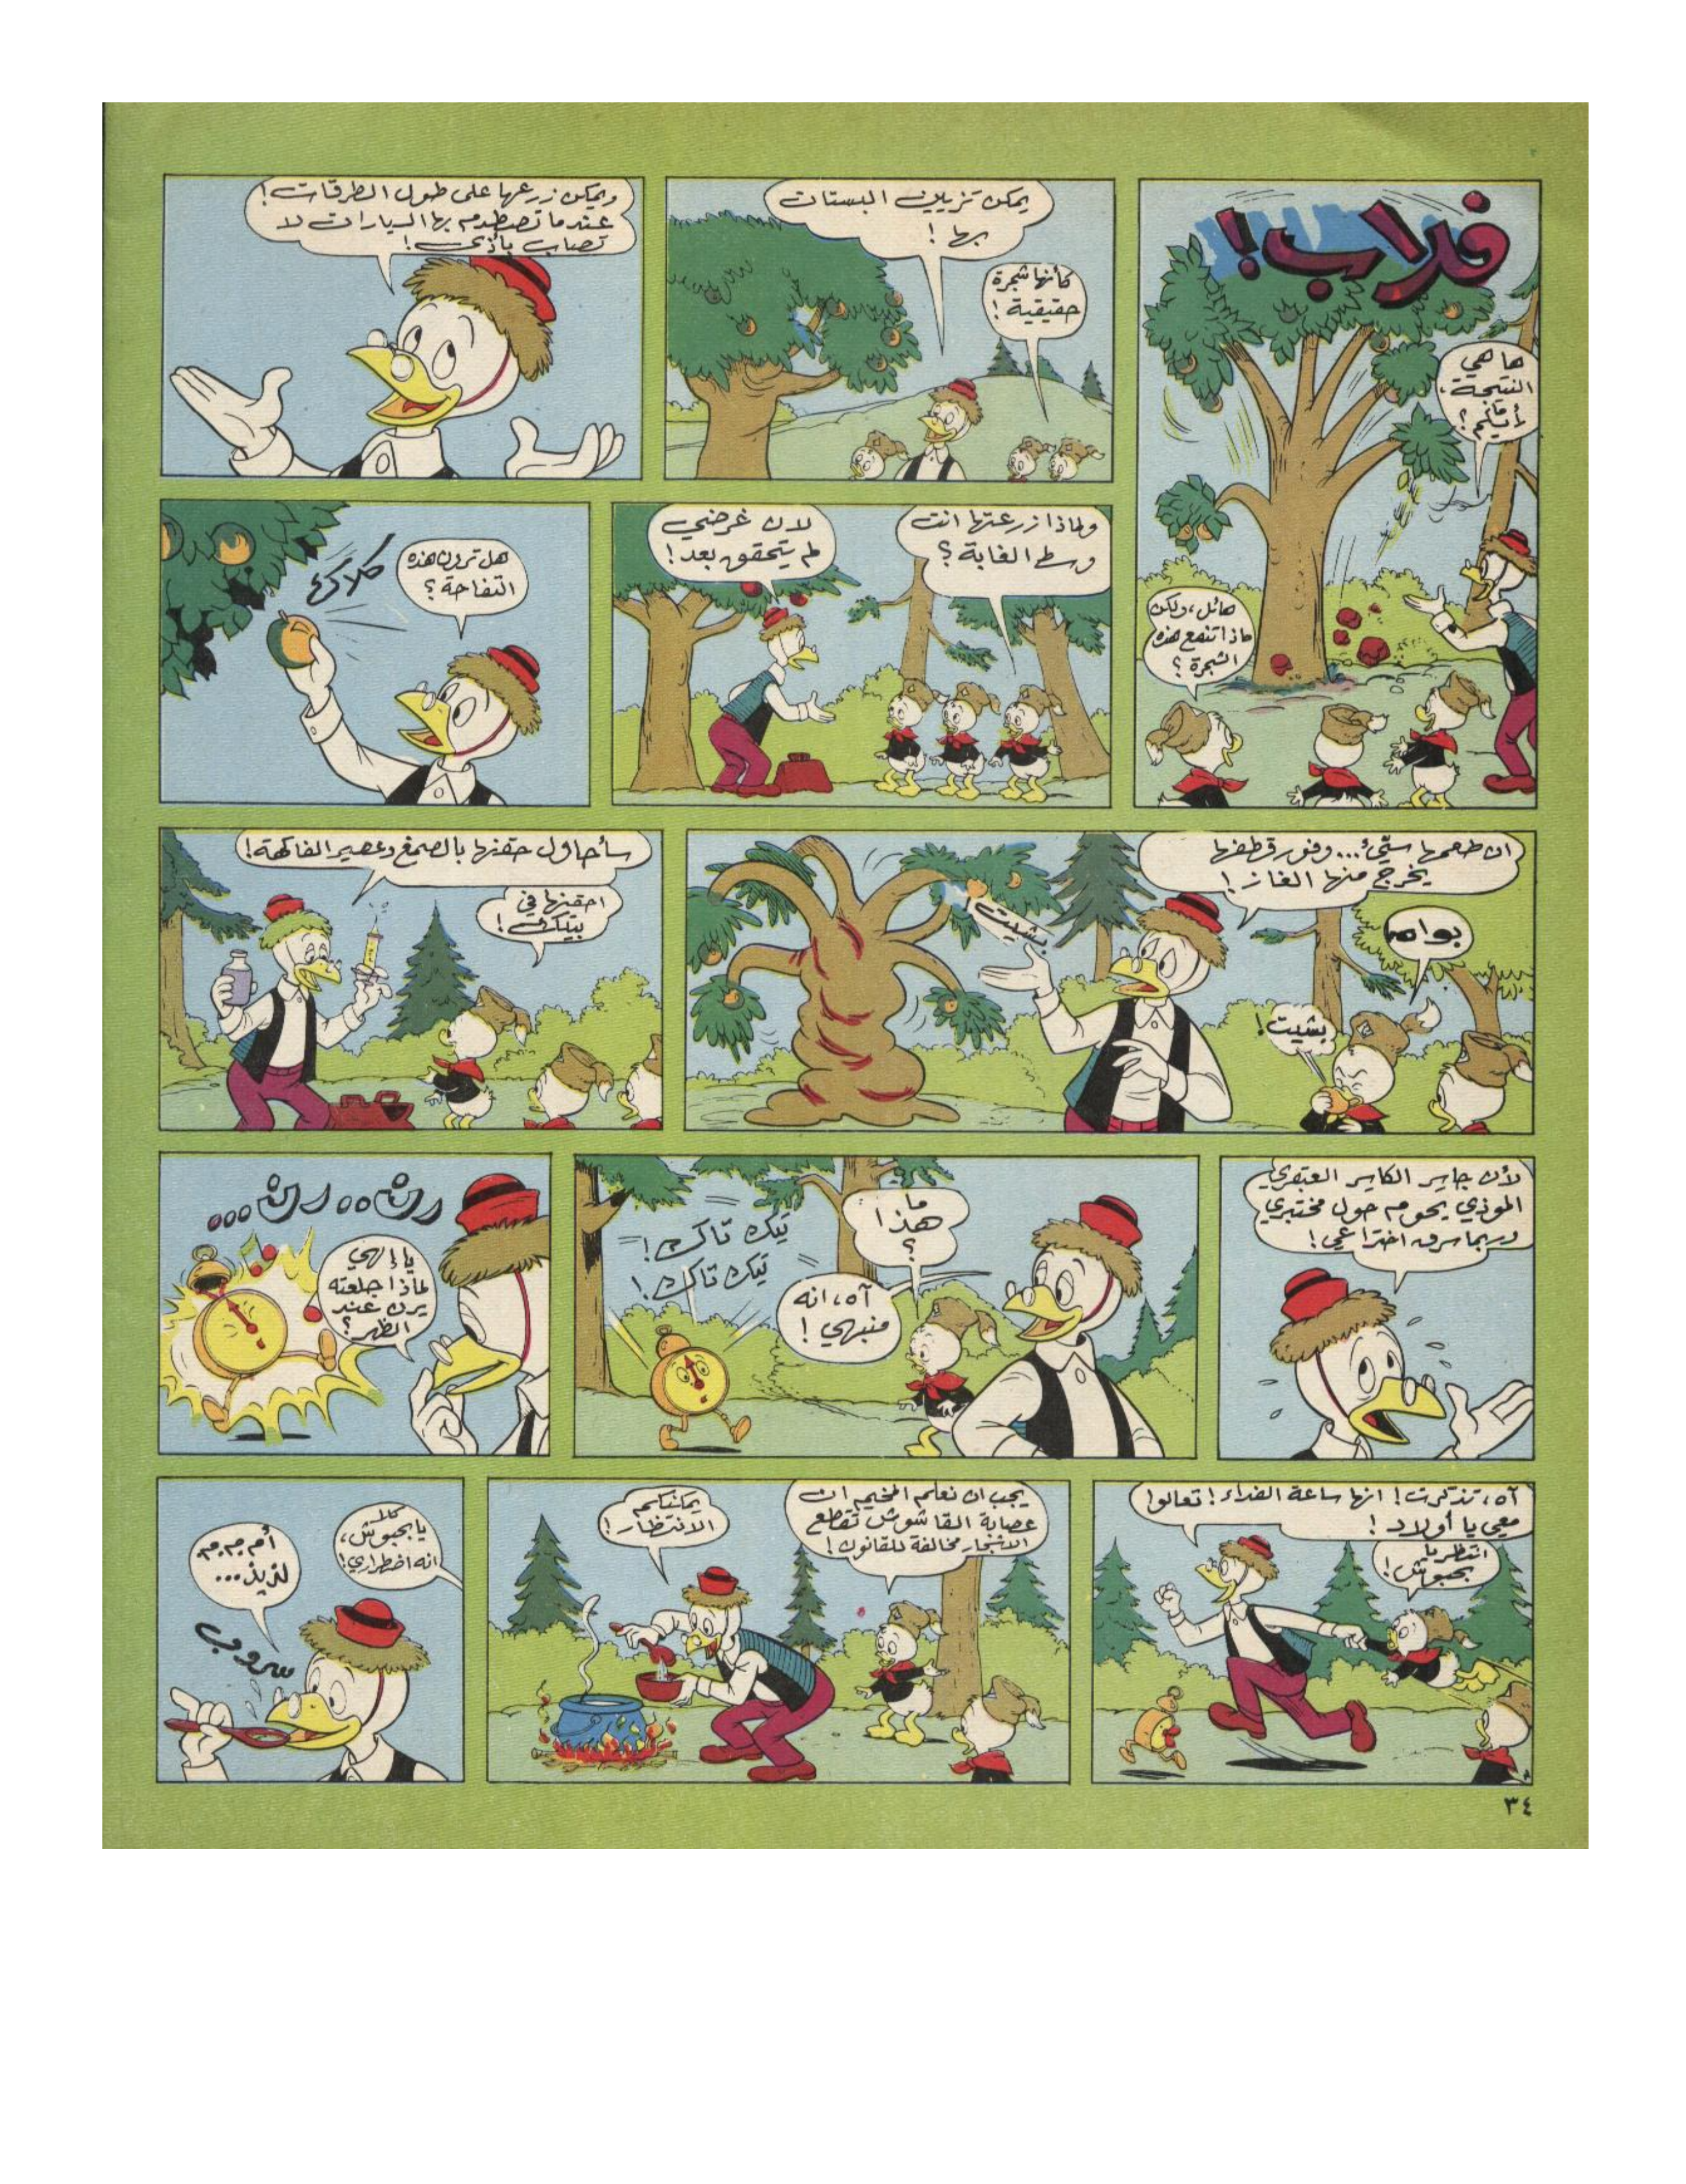 فداب!
ها هي
النتيجة،
أرأيتم؟
هائل، ولكن
ماذا تنفع هذه
الشجرة؟
يمكن تزيين البستان
بها!
كأنها شجرة
حقيقية!
ويمكن زرعها على طول الطرقات!
عندما تصطدم بها السيارات لا
تصاب بأذى!
ولماذا زرعتها انت
وسط الغابة؟
لان غرضي
لم يتحقق بعد!
هل ترون هذه
التفاحة؟
كلاك
ان طعمها سيّئ... وفور قطفها
يخرج منها الغاز!
بشيت!
بواه
بشيت!
سأحاول حقنها بالصمغ وعصير الفاكهة!
احقنها في
بيتك!
لأن جاسر الكاسر العبقري
المؤذي يحوم حول مختبري
وربما سرق اختراعي!
ما
هذا
؟
آه، انه
منبهي!
تيك تاك!
تيك تاك!
رن.. رن...
يا إلهي
لماذا جعلته
يرن عند
الظهر؟
آه، تذكرت! انها ساعة الغداء! تعالوا
معي يا أولاد!
انتظر يا
بحبوش!
يجب ان نعلم المخيم ان
عصابة القاشوش تقطع
الاشجار مخالفة للقانون!
يمكنكم
الانتظار!
كلا
يا بحبوش،
انه اضطراري!
أم م م م
لذيذ...
سروب
٣٤